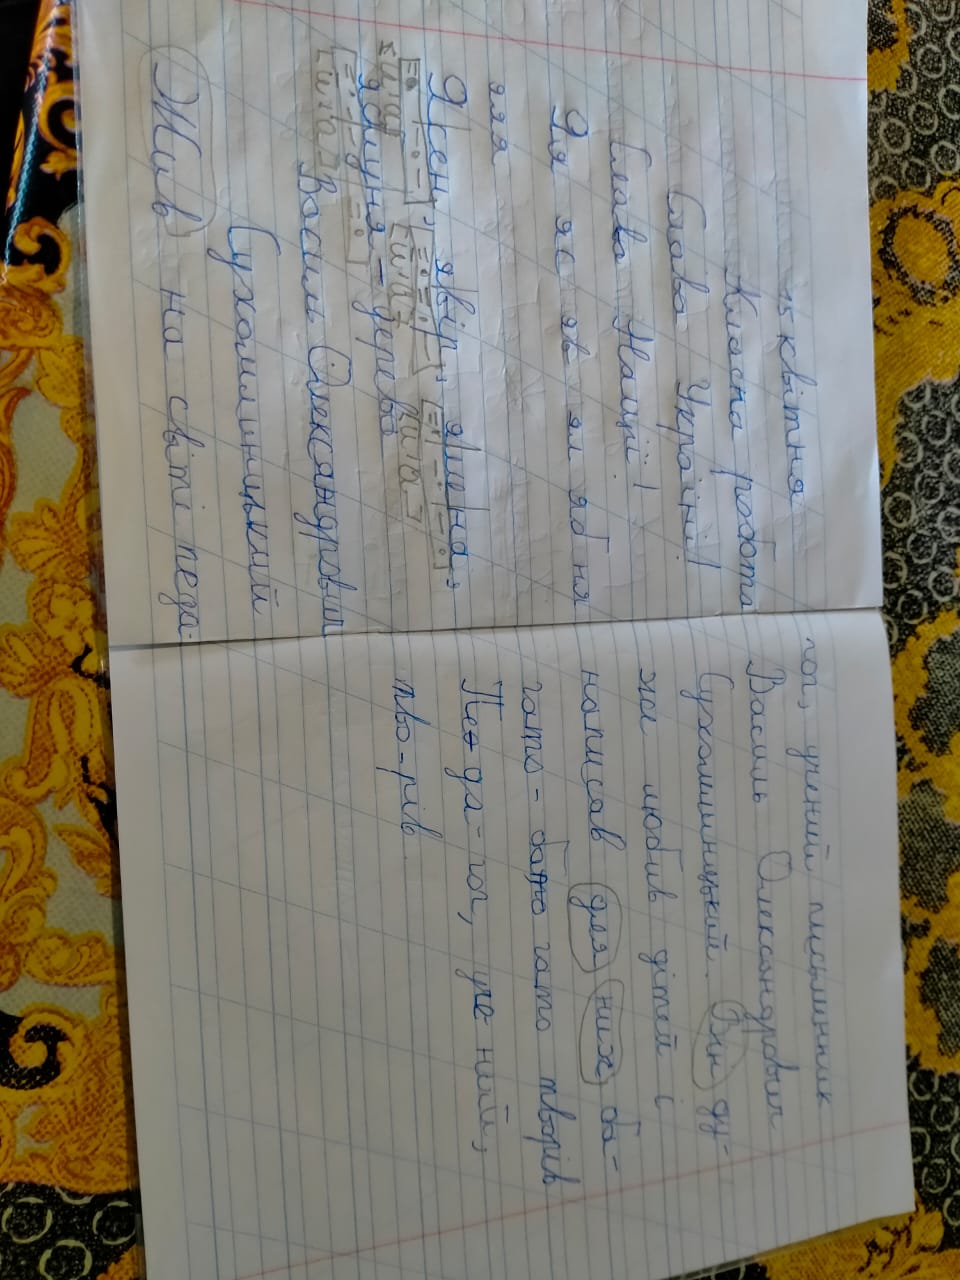 15 квітня
Класна робота
Слава Україні!
Слава Нації!
Яя яс яв ял яб ня
яяя
Ясен, явір, ялина,
яблуня - дерева
Василь Олександрович
Сухомлинський
Жив на світі педа-
гог, учений, письменник
Василь Олександрович
Сухомлинський. Він ду-
же любив дітей і
написав для них ба-
гато-багато творів
Пе-да-гог, уче-ний,
тво-рів